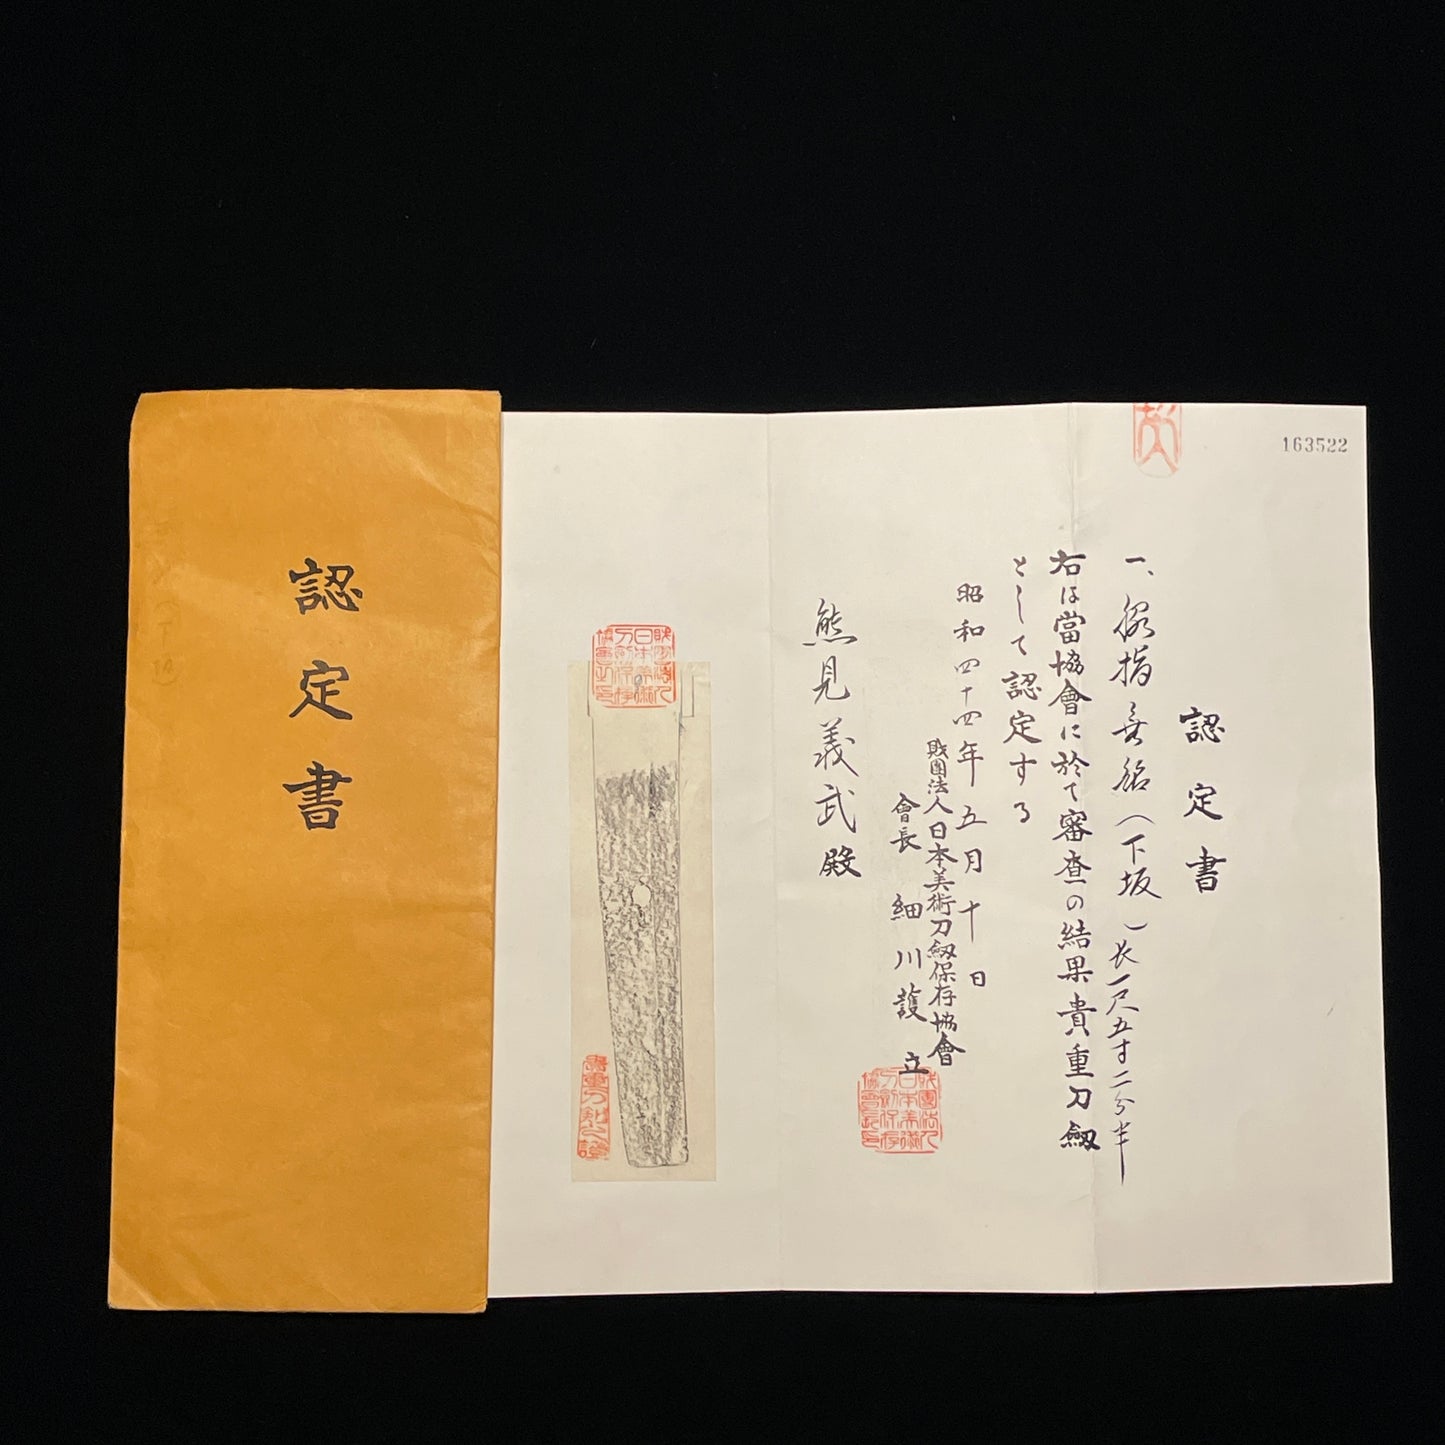 認定書
163522
認定書
一、脇指 無銘（下坂）長一尺五寸二分半
右は當協會に於て審査の結果貴重刀劔
として認定する
昭和四十四年五月十日
財團法人日本美術刀劔保存協會
會長 細川護立
熊見義武殿
財團法人日本美術刀劔保存協會長印
財團法人日本美術刀劔保存協會之印
貴重刀劔之證